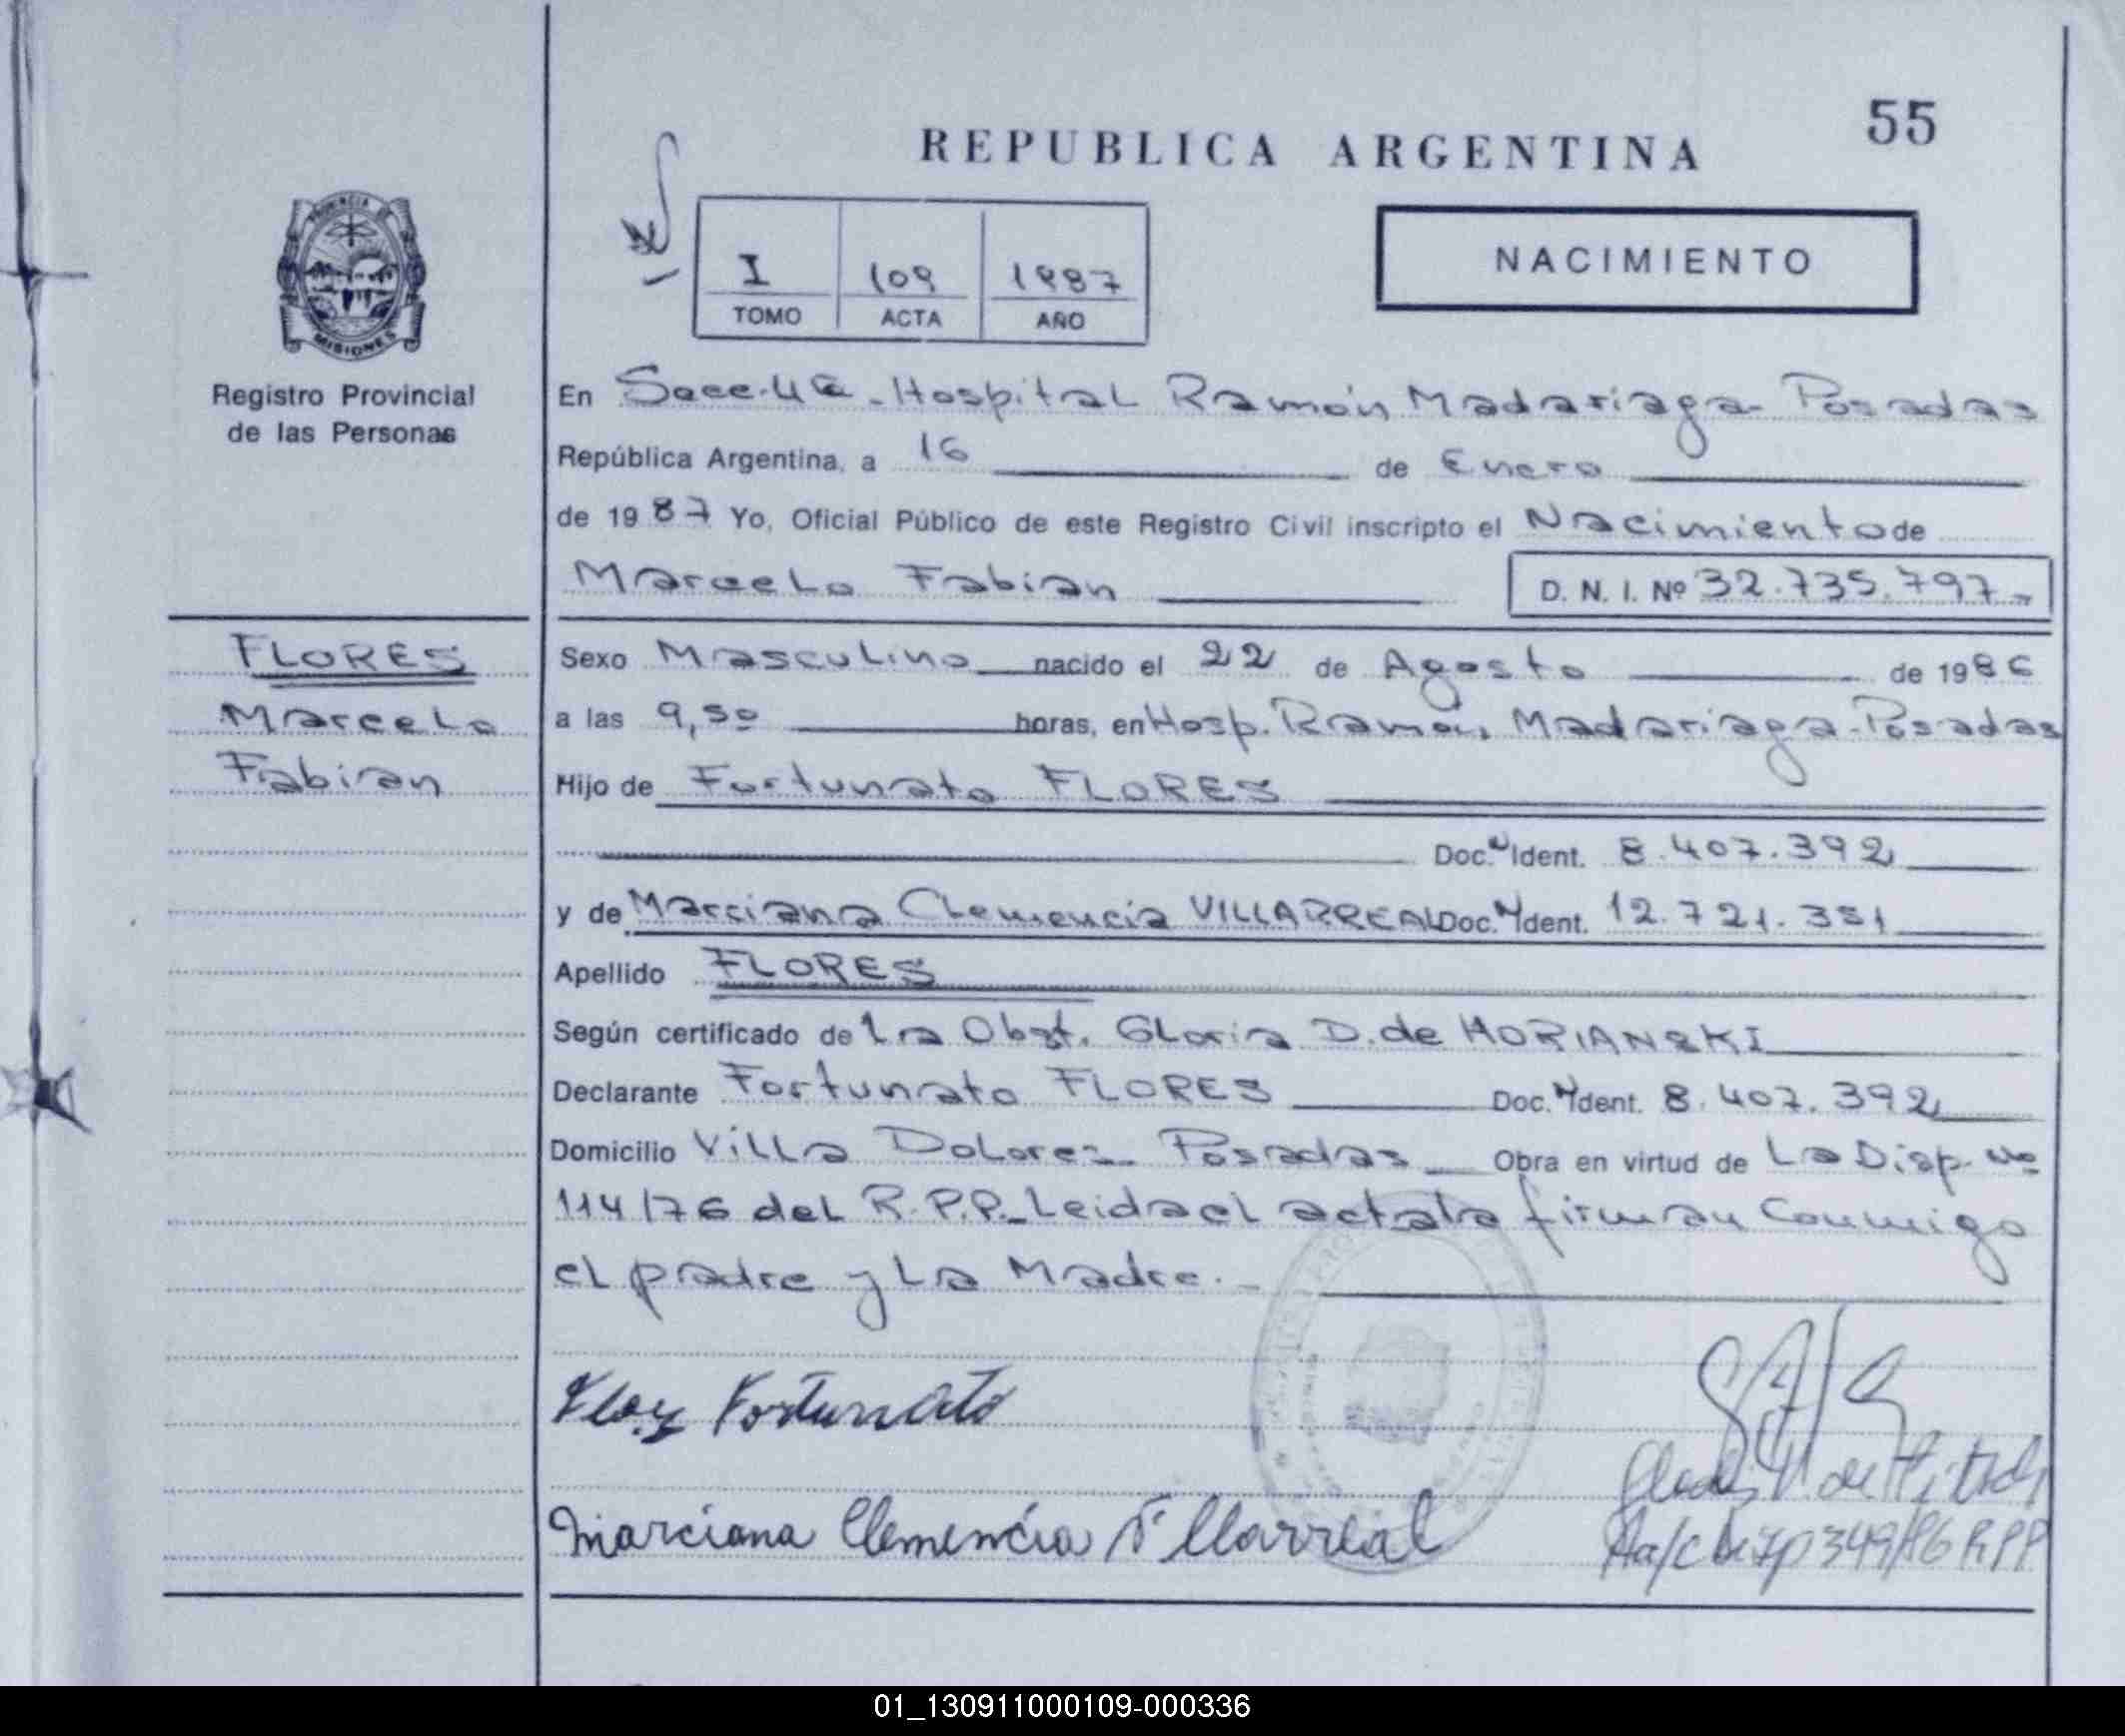 55
REPUBLICA ARGENTINA
PROVINCIA DE
MISIONES
I 109 1987
TOMO ACTA AÑO
NACIMIENTO
Registro Provincial
de las Personas
En Secc. 4a - Hospital Ramón Madariaga - Posadas
República Argentina, a 16 de Enero
de 1987 Yo, Oficial Público de este Registro Civil inscripto el Nacimiento de
Marcelo Fabian D. N. I. Nº 32.735.797
FLORES
Marcelo
Fabian
Sexo Masculino nacido el 22 de Agosto de 1986
a las 9,50 horas, en Hosp. Ramón Madariaga - Posadas
Hijo de Fortunato FLORES
Doc. Ident. 8.407.392
y de Marciana Clemencia VILLARREAL Doc. Ident. 12.721.351
Apellido FLORES
Según certificado de la Obst. Gloria D. de MORIANSKI
Declarante Fortunato FLORES Doc. Ident. 8.407.392
Domicilio Villa Dolores - Posadas Obra en virtud de La Disp. Nº
114/76 del R.P.P. - Leida el acta la firman Conmigo
el padre y La Madre. -
Flores Fortunato
Marciana Clemencia Villarreal
349/86 RPP
01_130911000109-000336